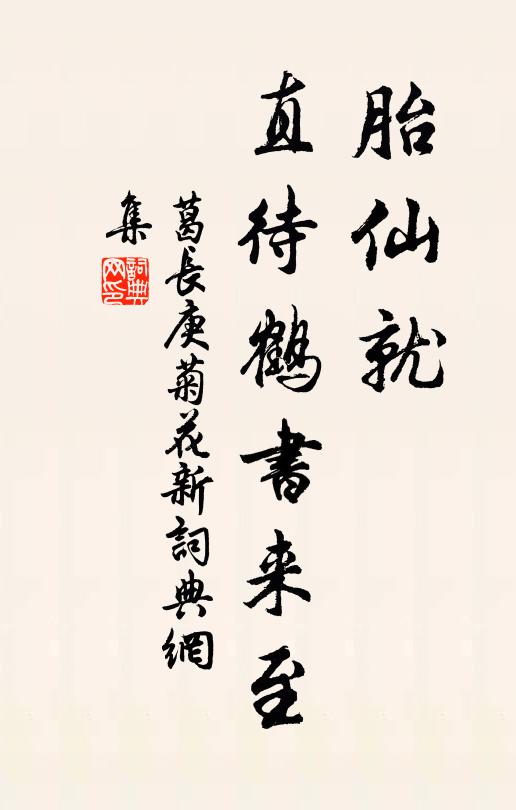 胎仙就
直待鹤書来至
葛長庚菊花新詞典網
集
詞典網印